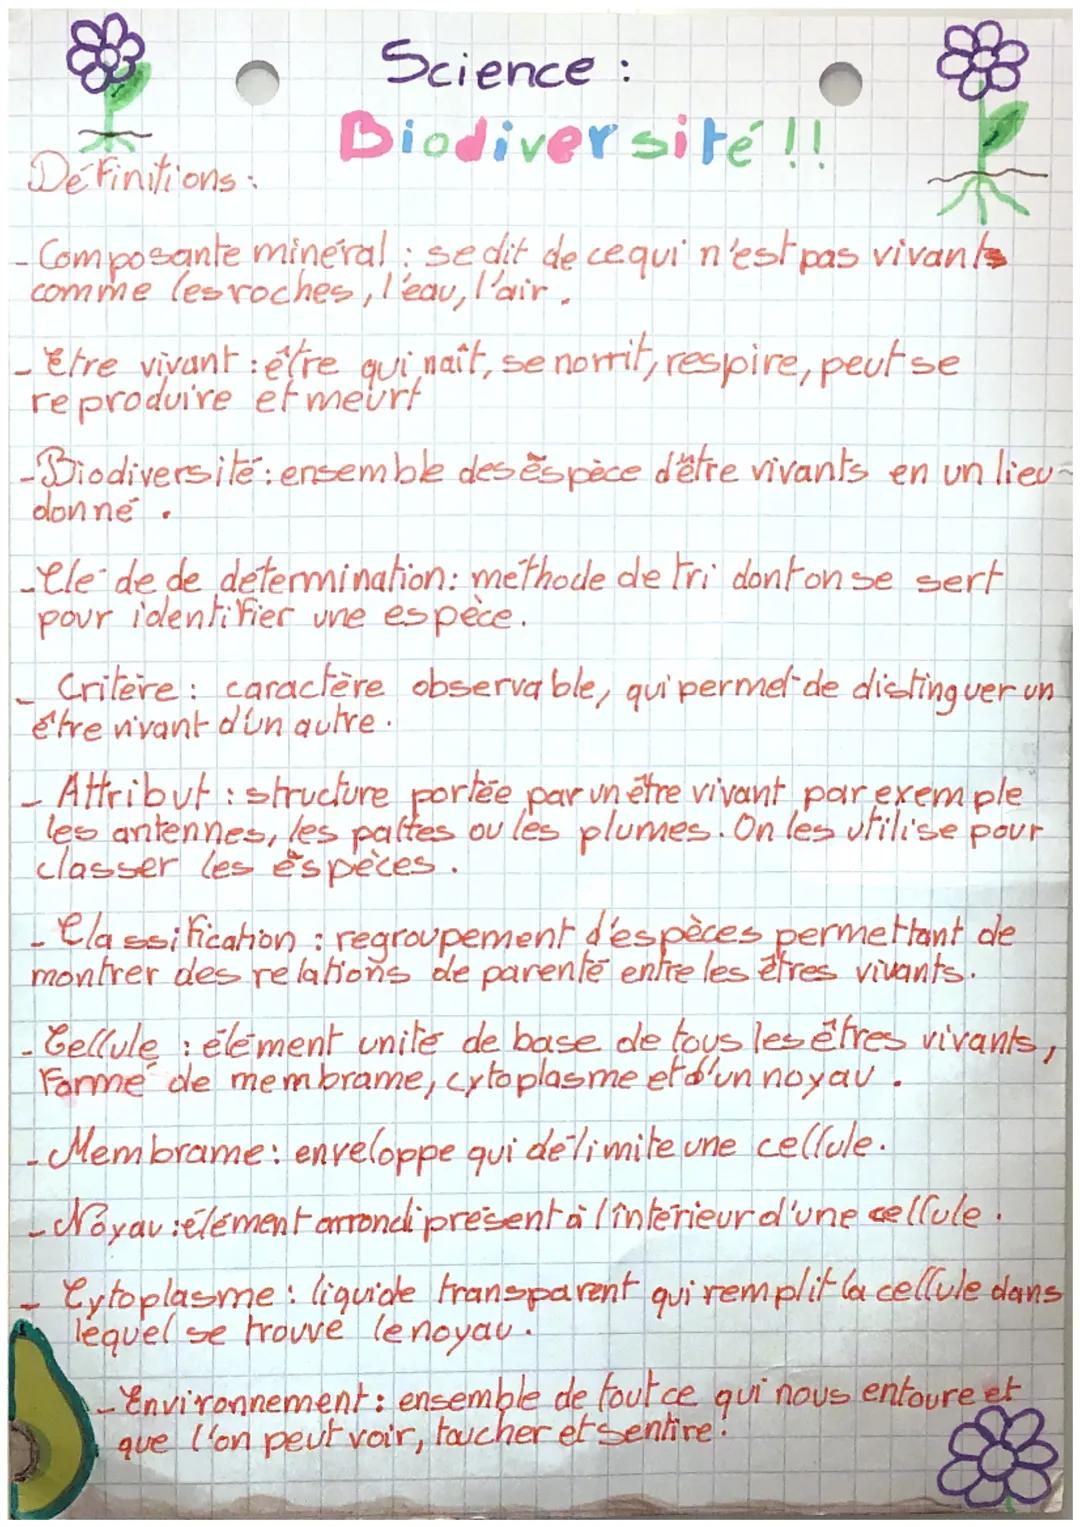 Science :
Biodiversité !!
Définitions :
- Composante minéral : se dit de ce qui n'est pas vivants
comme les roches, l'eau, l'air.
- Etre vivant : être qui naît, se norrit, respire, peut se
reproduire et meurt
- Biodiversité : ensemble des èspèce d'être vivants en un lieu
donné.
- Clé de de détermination : méthode de tri dont on se sert
pour identifier une espèce.
- Critère : caractère observable, qui permet de distinguer un
être vivant d'un autre.
- Attribut : structure portée par un être vivant par exemple
les antennes, les pattes ou les plumes. On les utilise pour
classer les èspèces.
- Classification : regroupement d'espèces permettant de
montrer des relations de parenté entre les êtres vivants.
- Cellule : élément unité de base de tous les êtres vivants,
Formé de membrame, cytoplasme et d'un noyau.
- Membrame : enveloppe qui délimite une cellule.
- Noyau : élément arrondi présent à l'intérieur d'une cellule.
- Cytoplasme : liquide transparent qui remplit la cellule dans
lequel se trouve le noyau.
- Environnement : ensemble de tout ce qui nous entoure et
que l'on peut voir, toucher et sentire.